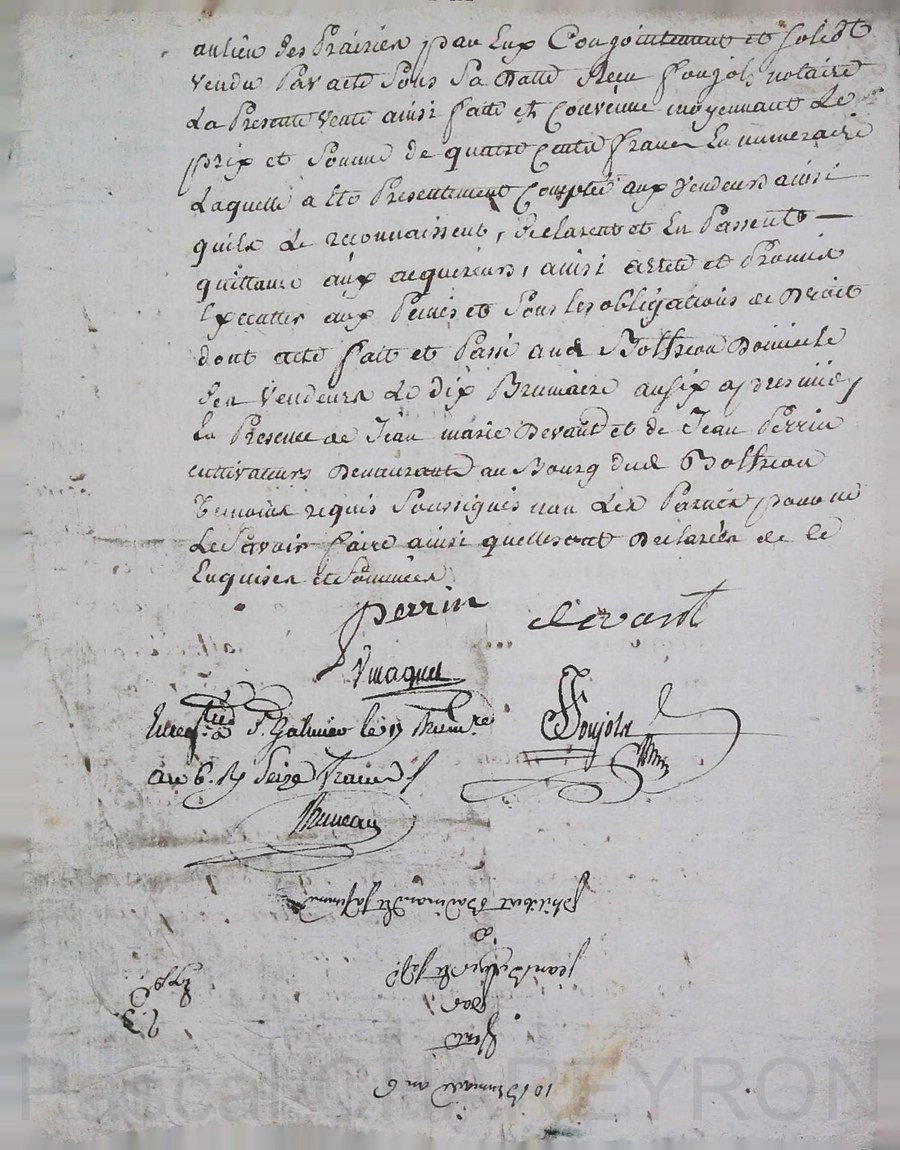 au lieu des Prairies par Eux Conjointement et solidt
vendu Par acte Sous Sa Datte Reçu Foujols notaire
La Presente vente ainsi faitte et Convenue moyennant Le
prix et Somme de quatre Cents francs En numeraire
Laquelle a ete Presentement Comptée aux vendeurs ainsi
quils Le reconnaissent, Declarent et En Passent
quittance aux acquereurs, ainsi arreté et Promis
Executter aux Peines et Sous les obligations de Droit
dont acte fait et Passé aud Bottheon Domicile
Des vendeurs Le dix Brumaire an six apres midy
En Presence de Jean marie Devant et de Jean Perrin
cultivateurs Demeurants au Bourg dud Bottheon
Temoins requis Soussignés non Les Parties pour ne
Le Savoir faire ainsi quelles ont Declarées de ce
Enquises et Sommées
Perrin devant
Foujols
a St Galmier le 17 Brumre
an 6. Rx Seize francs
Bruneau
a
par
10 Brumaire an 6
Pascal CHAREYRON